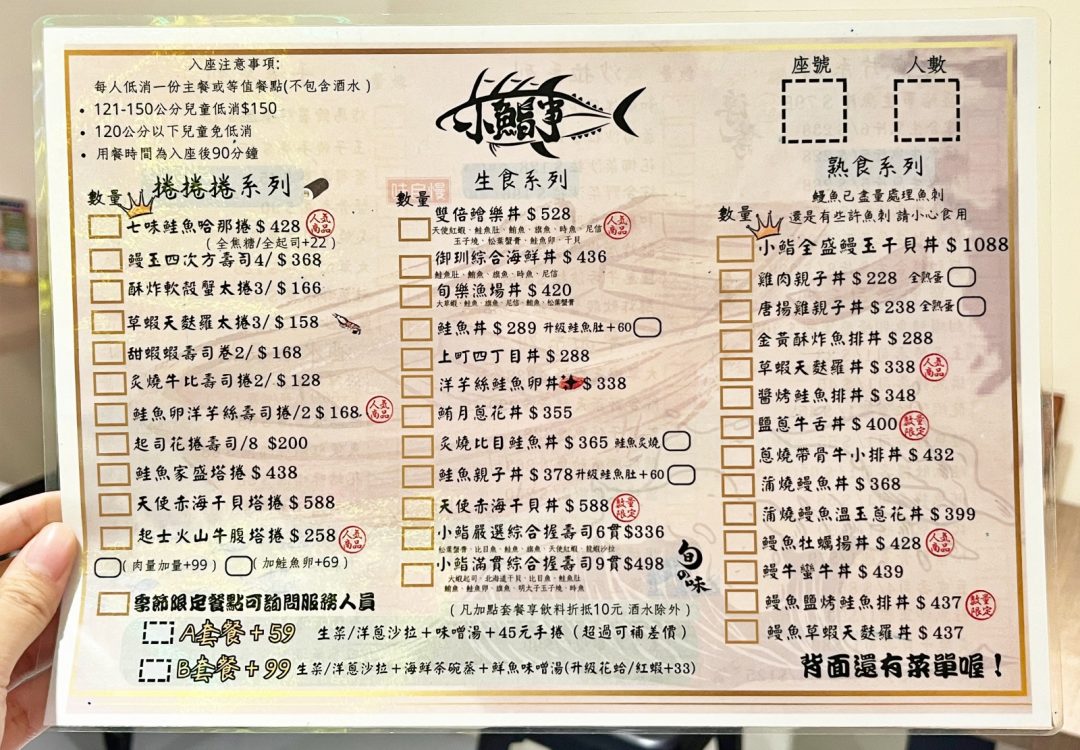 入座注意事項:
每人低消一份主餐或等值餐點(不包含酒水)
• 121-150公分兒童低消$150
• 120公分以下兒童免低消
• 用餐時間為入座後90分鐘
小鮨事
座號
人數
捲捲捲系列
數量
七味鮭魚哈那捲$428 人氣商品
(全焦糖/全起司+22)
鰻玉四次方壽司4/$368
酥炸軟殼蟹太捲3/$166
草蝦天麩羅太捲3/$158
甜蝦蝦壽司卷2/$168
炙燒牛比壽司捲2/$128
鮭魚卵洋芋絲壽司捲/2$168 人氣商品
起司花捲壽司/8 $200
鮭魚家盛塔捲$438
天使赤海干貝塔捲$588
起士火山牛腹塔捲$258 人氣商品
(肉量加量+99) (加鮭魚卵+69)
季節限定餐點可詢問服務人員
生食系列
數量
雙倍鱠樂丼$528 人氣商品
天使紅蝦、鮭魚肚、鮪魚、旗魚、時魚、尼信
玉子燒、松葉蟹膏、鮭魚卵、干貝
御玥綜合海鮮丼$436
鮭魚肚、鮪魚、旗魚、時魚、尼信
旬樂漁場丼$420
大草蝦、鮭魚、旗魚、尼信、鮪魚、松葉蟹膏
鮭魚丼$289 升級鮭魚肚+60
上町四丁目丼$288
洋芋絲鮭魚卵丼$338
鮪月蔥花丼$355
炙燒比目鮭魚丼$365 鮭魚炙燒
鮭魚親子丼$378升級鮭魚肚+60
天使赤海干貝丼$588 數量限定
小鮨嚴選綜合握壽司6貫$336
松葉蟹膏、比目魚、鮭魚、旗魚、天使紅蝦、龍蝦沙拉
小鮨滿貫綜合握壽司9貫$498
大蝦起司、北海道干貝、比目魚、鮭魚肚
鮪魚、鮭魚卵、旗魚、明太子玉子燒、時魚
旬の味
熟食系列
鰻魚已盡量處理魚刺
還是有些許魚刺 請小心食用
數量
小鮨全盛鰻玉干貝丼$1088
雞肉親子丼$228 全熟蛋
唐揚雞親子丼$238全熟蛋
金黃酥炸魚排丼$288
草蝦天麩羅丼$338 人氣商品
醬烤鮭魚排丼$348
鹽蔥牛舌丼$400 數量限定
蔥燒帶骨牛小排丼$432
蒲燒鰻魚丼$368
蒲燒鰻魚溫玉蔥花丼$399
鰻魚牡蠣揚丼$428 人氣商品
鰻牛蠻牛丼$439
鰻魚鹽烤鮭魚排丼$437 數量限定
鰻魚草蝦天麩羅丼$437
(凡加點套餐享飲料折抵10元 酒水除外)
A套餐+59 生菜/洋蔥沙拉+味噌湯+45元手捲(超過可補差價)
B套餐+99 生菜/洋蔥沙拉+海鮮茶碗蒸+鮮魚味噌湯(升級花蛤/紅蝦+33)
背面還有菜單喔!